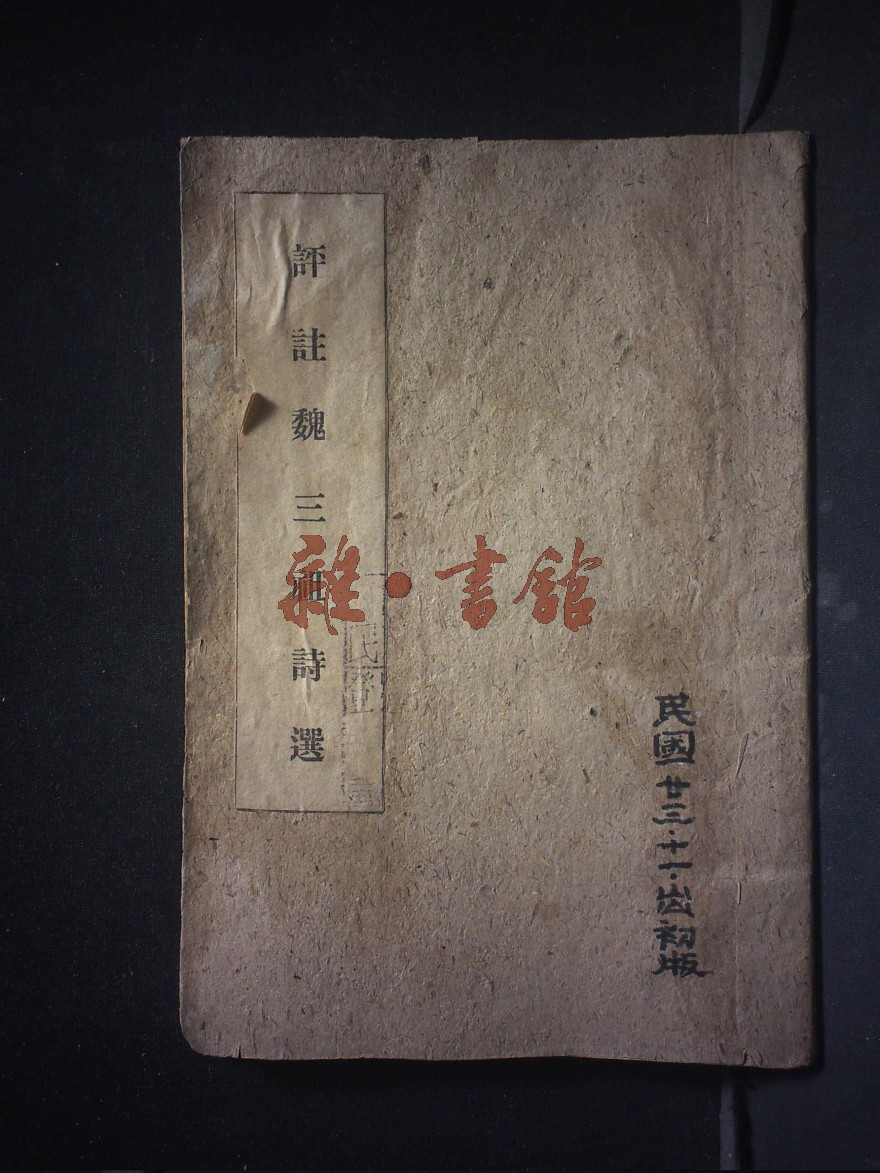 評註魏三祖詩選
雜·書館
民國廿三·十一·出初版